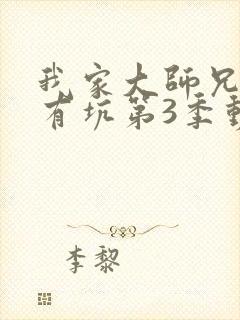 我家大師兄
有坑第3季動
李黎